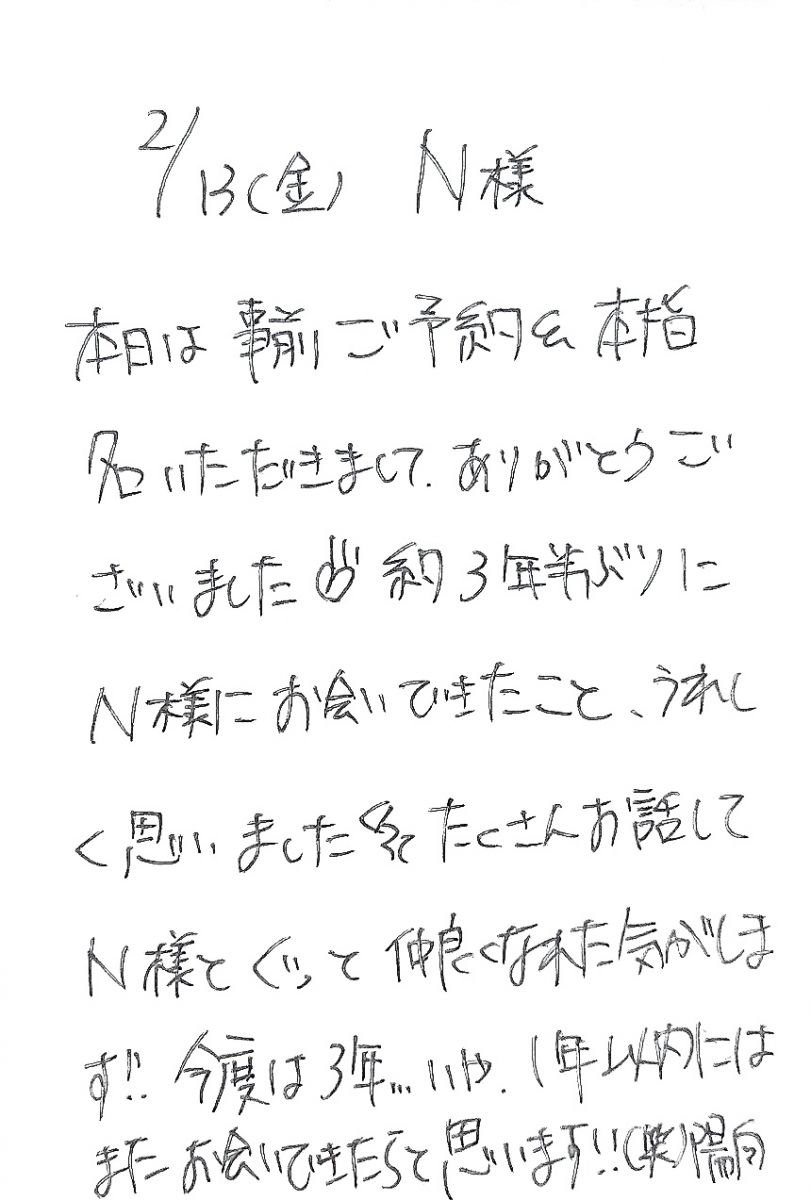 2/13(金) N様
本日は事前ご予約&本指
名いただきまして、ありがとうご
ざいました 約3年半ぶりに
N様にお会いできたこと、うれし
く思いました たくさんお話して
N様とぐっと仲良くなれた気がしま
す!! 今度は3年...いや、1年以内には
またお会いできたらと思います!!(笑)陽向